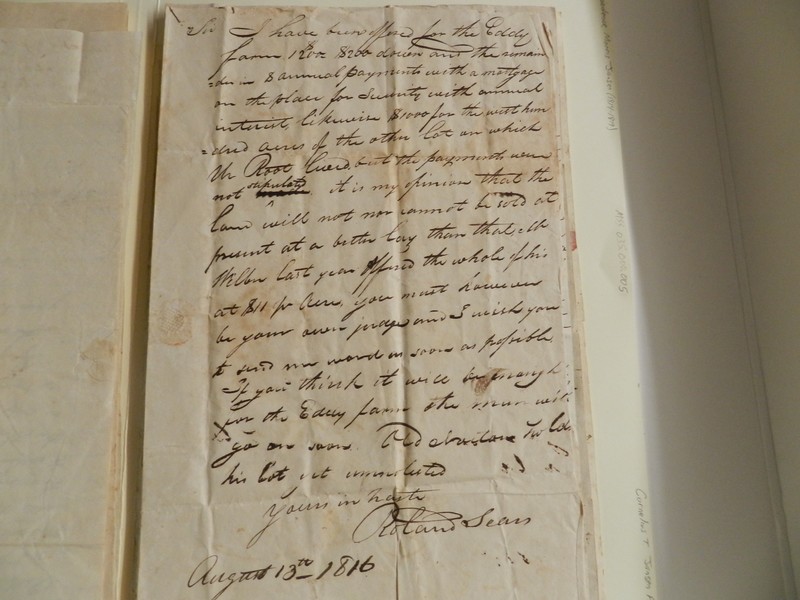 Sir I have been offered for the Eddy
farm 1200 $200 down and the remain
=der in 8 annual payments with a mortgage
on the place for security with annual
interest, likewise $1000 for the west hun
=dred acres of the other lot on which
Mr Root lived but the payments were
not stipulated it is my opinion that the
land will not nor cannot be sold at
present at a better lay than that, Mr
Wilber last year offered the whole of his
at $11 pr Acre, you must however
be your own judge and I wish you
to send me word as soon as possible
If you think it will be enough
for the Eddy farm the man will
go on soon. Old holds
his lot yet unmolested
Yours in haste
Roland Sears
August 13th 1816